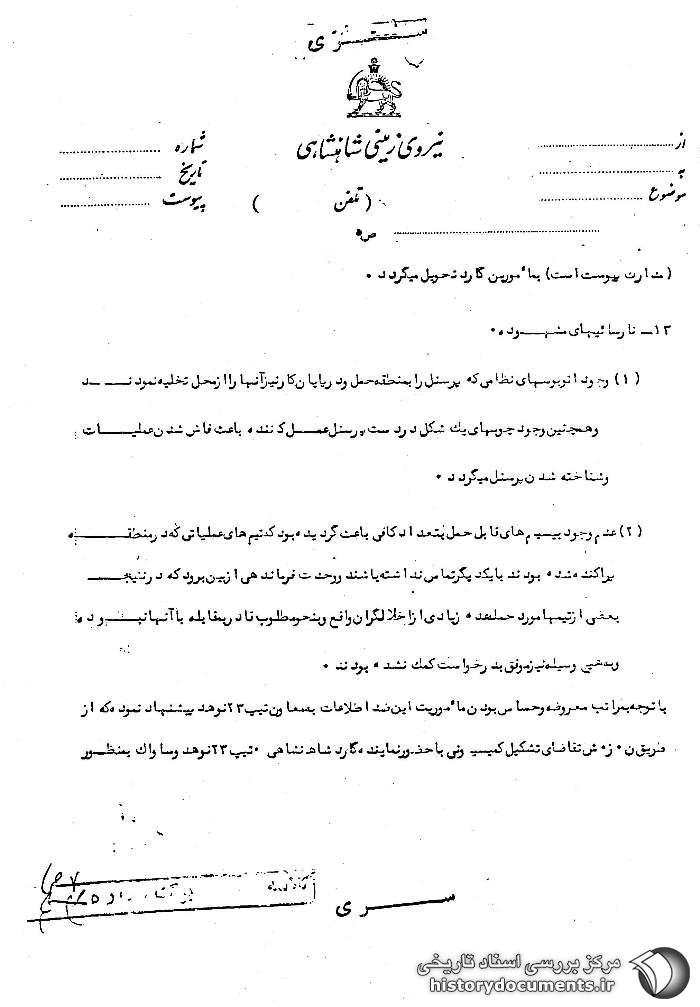 سری
نیروی زمینی شاهنشاهی
از
به
موضوع
شماره
تاریخ
پیوست
(تلفن )
ص۵
(مدارک پیوست است) بمأمورین گارد تحویل میگردد.
۱۳ـ نارسائیهای مشهوده.
(۱) وجود اتوبوسهای نظامی که پرسنل را بمنطقه حمل و در پایان کار نیز آنها را از محل تخلیه نمودند
و همچنین وجود چوبهای یک شکل در دست پرسنل عمل کننده باعث فاش شدن عملیات
و شناخته شدن پرسنل میگردد.
(۲) عدم وجود بیسیم های قابل حمل بتعداد کافی باعث گردیده بود که تیم های عملیاتی که در منطقه
پراکنده شده بودند با یکدیگر تماس نداشته باشند و وحدت فرماندهی از بین برود که در نتیجه
بعضی از تیمها مورد حمله عده زیادی از اخلالگران واقع و بنحو مطلوب قادر بمقابله با آنها نبوده
و بدین وسیله نیز موفق بدرخواست کمک نشده بودند.
با توجه بمراتب معروضه و حساس بودن مأموریت این ضد اطلاعات بمعاون تیپ ۲۳ نوهد پیشنهاد نمود که از
طریق ن.ز.ش تقاضای تشکیل کمیسیونی با حضور نماینده گارد شاهنشاهی. تیپ ۲۳ نوهد و ساواک بمنظور
سری
مرکز بررسی اسناد تاریخی
historydocuments.ir